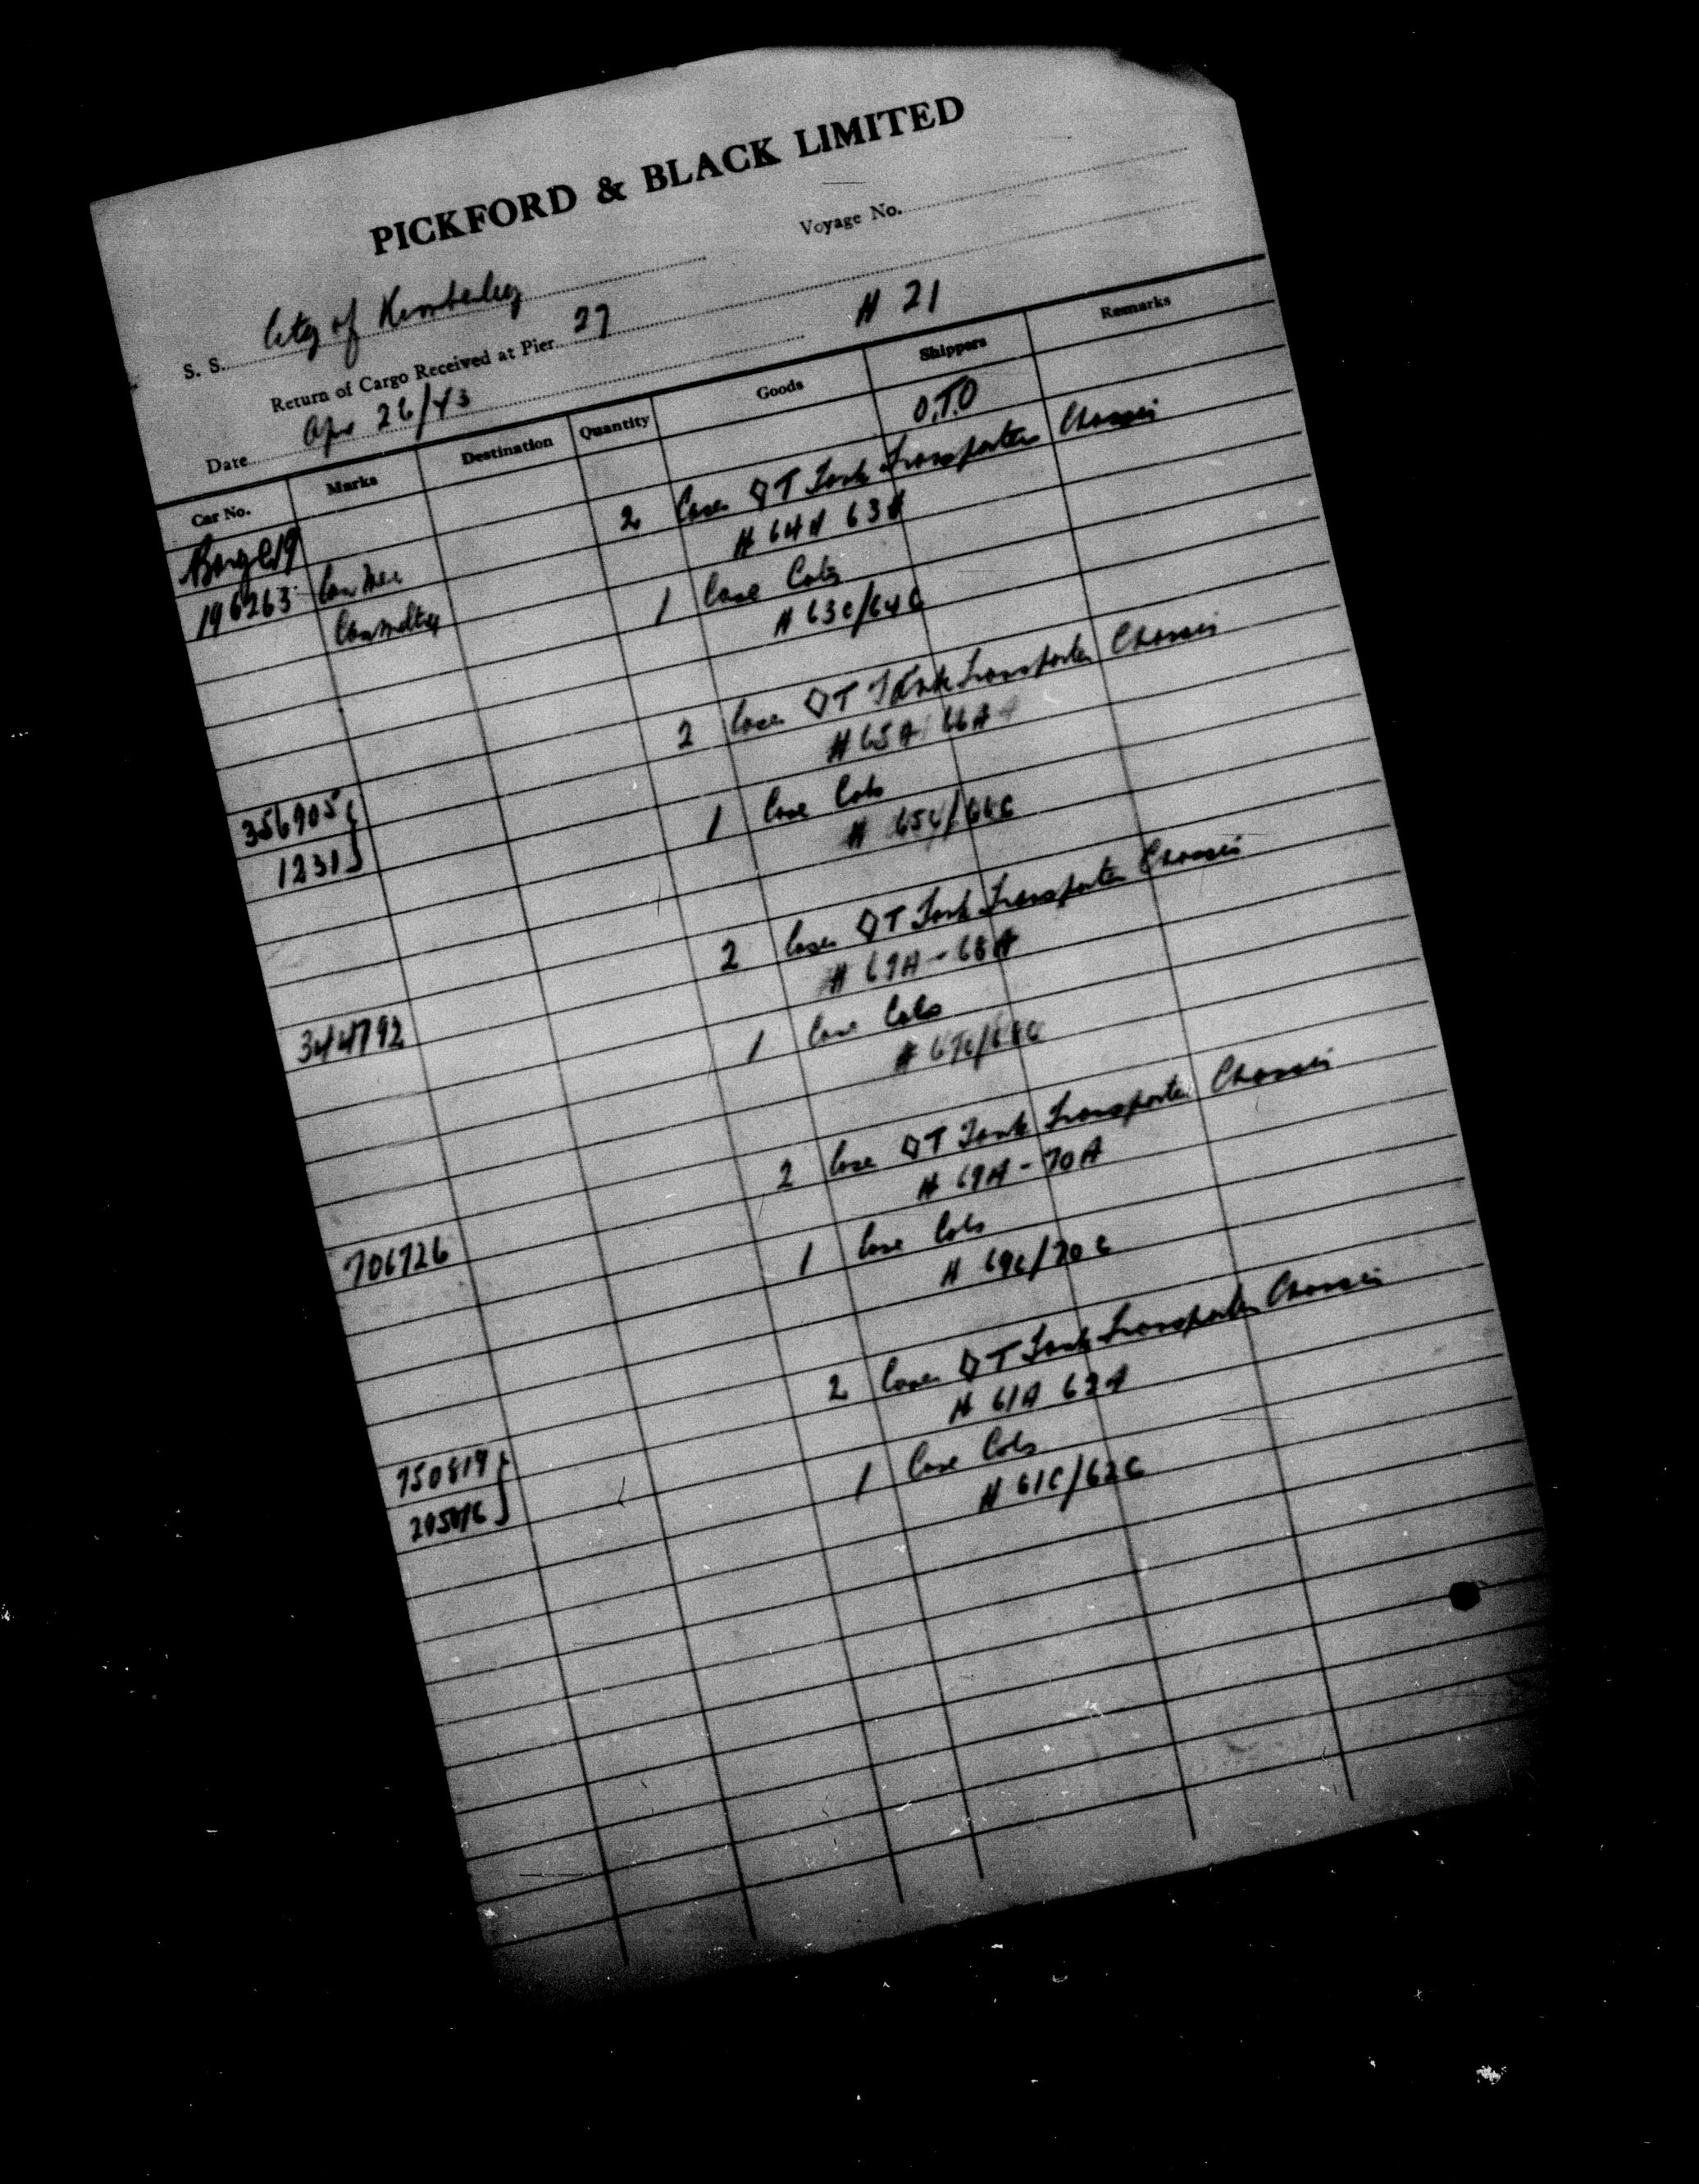 PICKFORD & BLACK LIMITED
Voyage No.
S. S. City of Kimberley
Return of Cargo Received at Pier 27
# 21
Date Apr 26/43
Car No. Marks Destination Quantity Goods Shippers Remarks
O.T.O
Barge 19
196263 2 Cases T Tank Transporter Chassis
# 64A 63A
1 Case Cabs
# 63C/64C
356905 2 Cases T Tank Transporter Chassis
1231 # 65A 66A
1 Case Cabs
# 65C/66C
344792 2 Cases T Tank Transporter Chassis
# 67A - 68A
1 Case Cabs
# 67C/68C
706726 2 Case T Tank Transporter Chassis
# 69A - 70A
1 Case Cabs
# 69C/70C
750819 2 Cases T Tank Transporter Chassis
# 61A 62A
1 Case Cabs
# 61C/62C